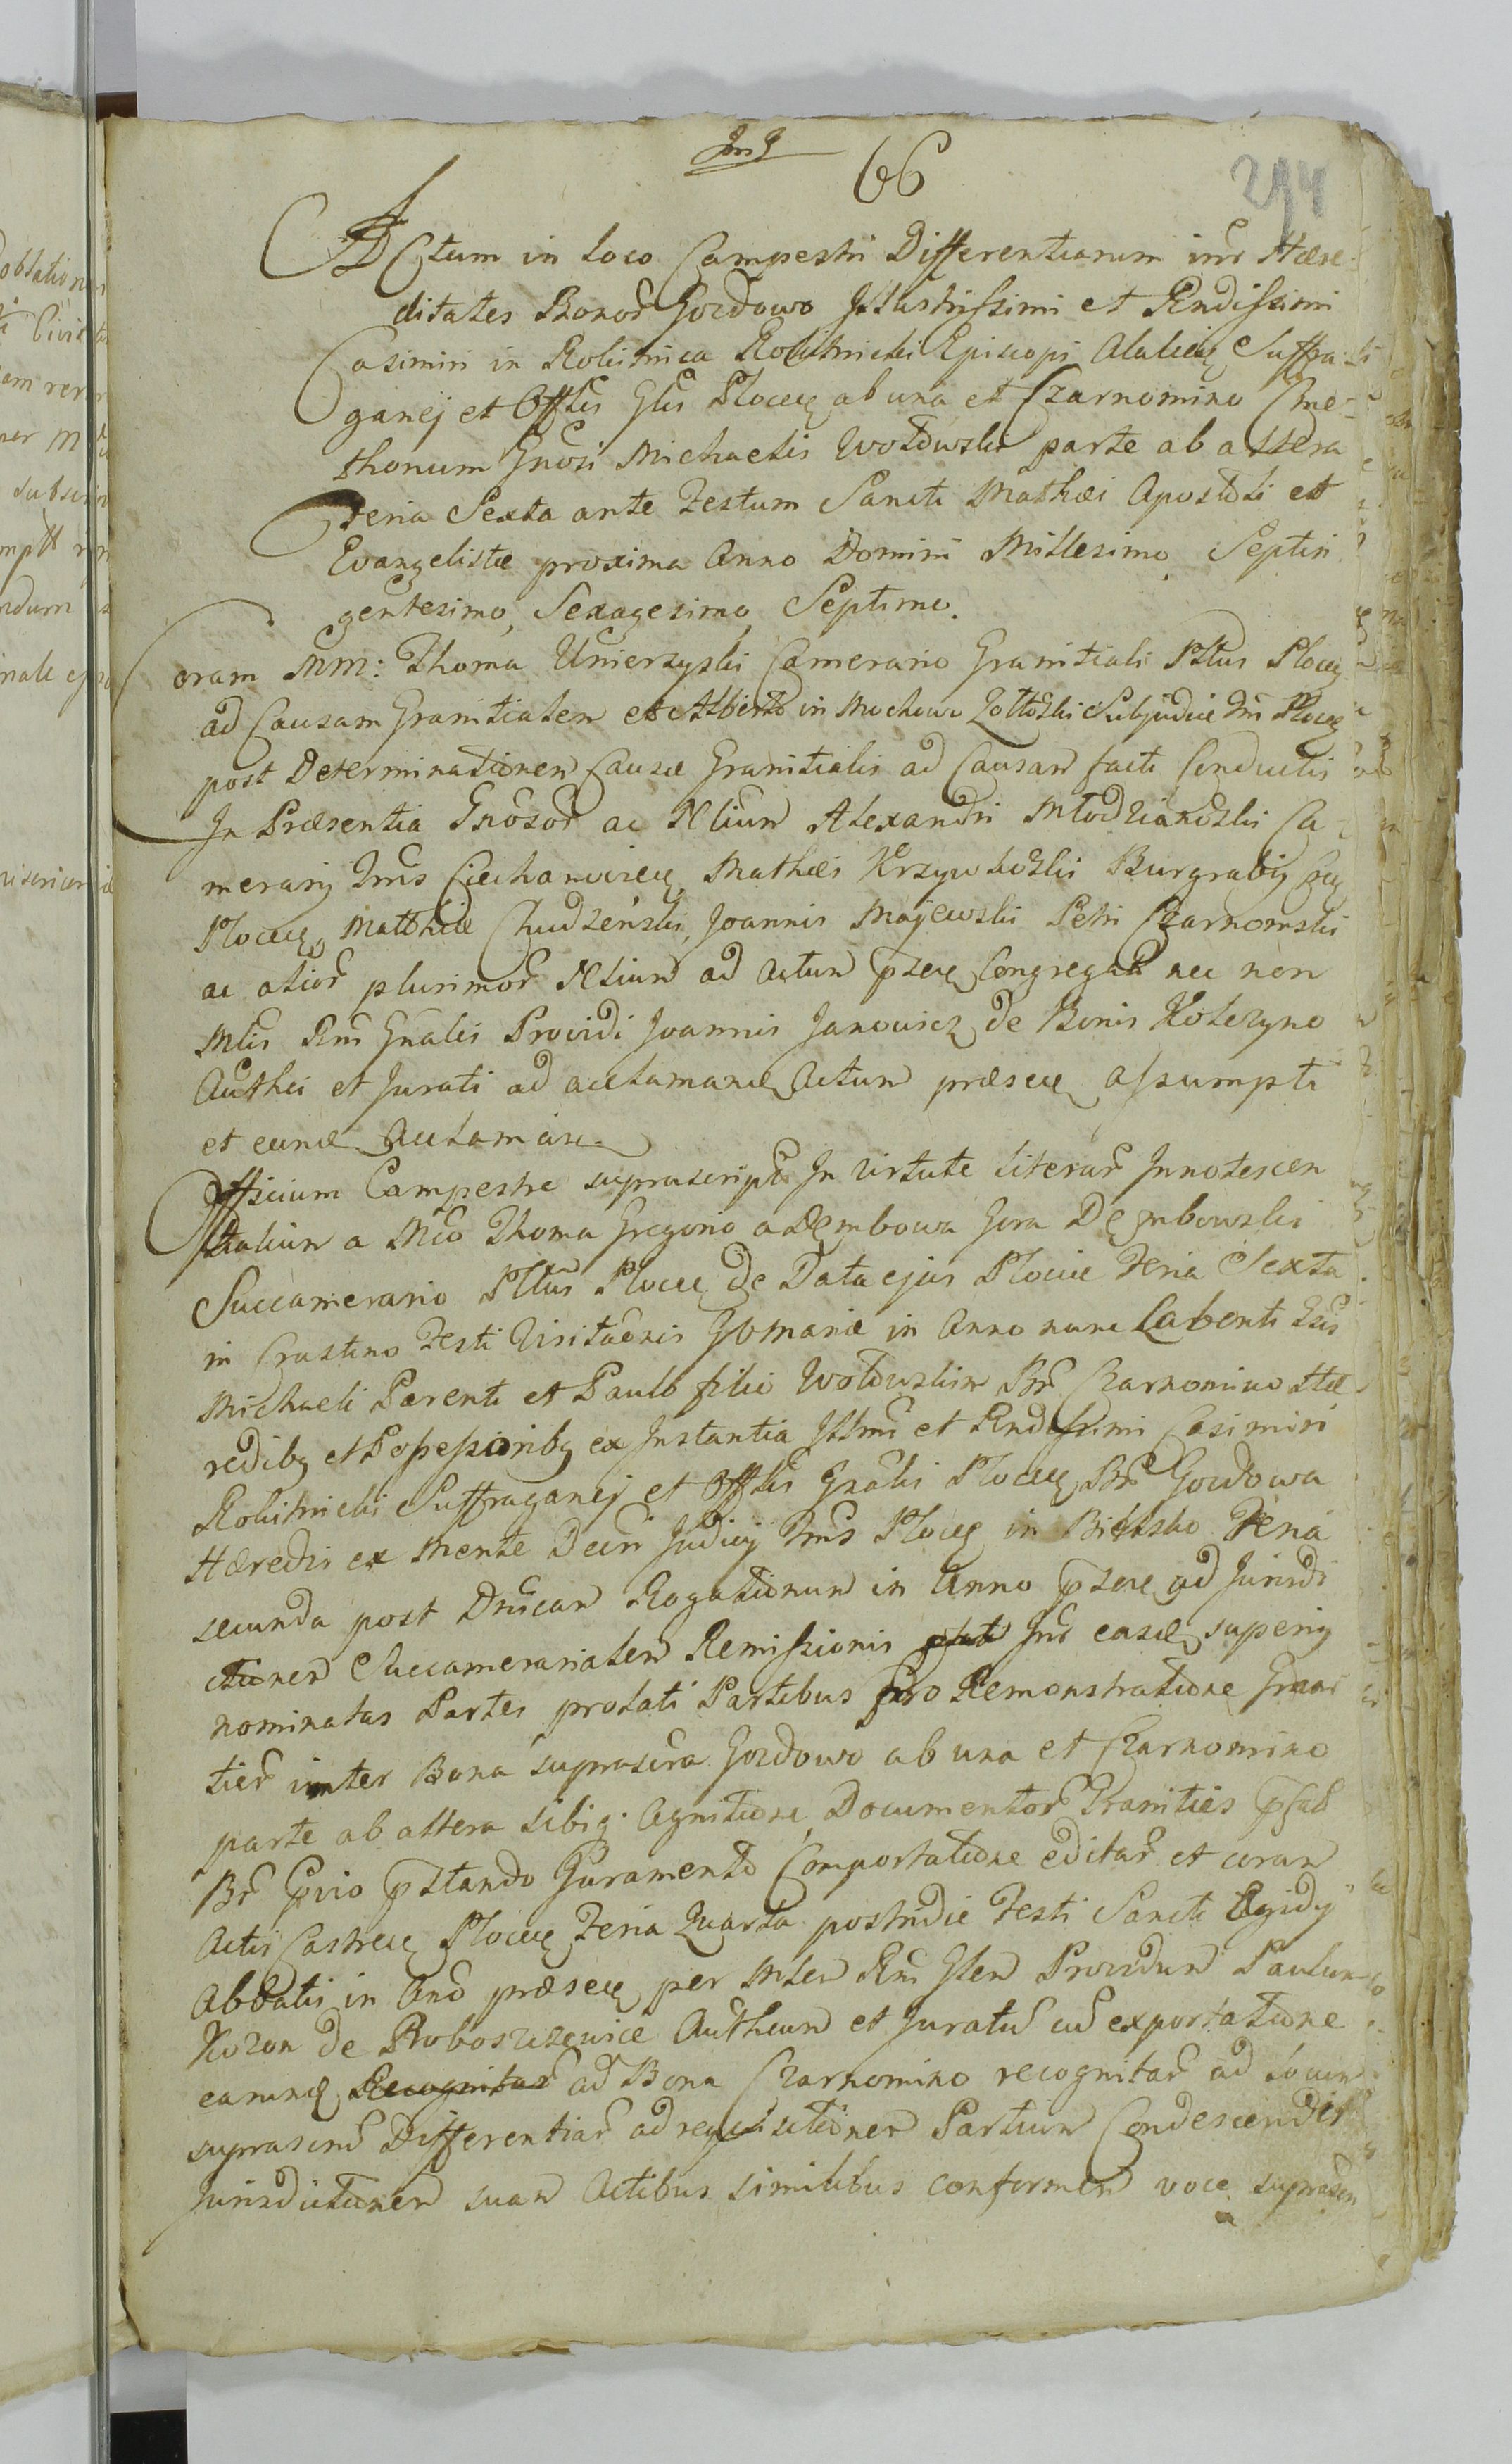 66
294
Actum in Loco Campestri Differentiarum intr Hære-
ditates Bonor Gozdowo Illustrissimi et Rndissimi
Casimiri in Rokitnica Rokitnicki Episcopi Suffra-
ganej et Offlis Glis Plocen ab una et Czarnomino Cme-
thonum Gnosi Michaelis Wołowski parte ab altera
Feria Sexta ante Festum Sancti Mathæi Apostoli et
Evangelistæ proxima Anno Domini Millesimo Septin
gentesimo, Sexagesimo Septimo.
Coram MM: Thoma Unierzyski Camerario Granitiali Pttus Plocen
ad Causam Granitialem et Alberto in Mochowo Subjudice Plocen
post Determinationem Causæ Granitialis ad Causam facti Conductis
In Præsentia Gnosor ac Nlium Alexandri Młodzianowski Ca-
merarij Tris Ciechanovien, Mathæi Burgrabij
Plocen, Matthiæ Chudzeński, Joannis Majewski Petri Czarnomski
ac alior plurimor Nlium ad Actum Congregat nec non
Mlis Rni Gnalis Providi Joannis Janowicz de Bonis Kolczyno
Authci et Jurati ad acclamand Actum præsen assumpti
et eund acclaman.
Officium Campestre suprascript In Virtute Literar Innotescen
tialium a Mco Thoma Gregorio a Dembowa Gora Dembowski
Succamerario Pttus Plocen de Data ejus Plociæ Feria Sexta
in Crastino Festi Visitaonis in Anno nunc Labenti Gsis
Michaeli Parenti et Paulo filio Wołowskim Br Czarnomino Hæ-
redibq et Possessoribq ex Instantia Illmi et Rndissimi Casimiri
Rokitnicki Suffraganej et Offlis Gnalis Plocen, Br Gozdowa
Hæredis ex Mente Decri Judicij Tris Plocen in Bielsko Feria
secunda post Dnicam Rogationum in Anno ad Jurisdi
ctionem Succamerarialem Remissionis Intr easd superiq
nominatas Partes prolati Partibus pro Remonstratione Grani
tier inter Bona suprascra Gozdowo ab una et Czarnomino
parte ab altera sibiq. Agnitione, Documentor Granities
Br Juramento Comportatione editar et coram
Actis Castren Plocen Feria Quarta postridie Festi Sancti Ægidij
Abbatis in Ano præsen per Mlem Rni Glem Providum Paulum
Kozon de Proboszczewice Authcum et Juratu cu exportatione
earund Recognitar ad Bona Czarnomino recognitar ad Locum
suprascrit Differentiar ad requisitionem Partium Condescendit
Jurisdictionem suam Actibus similibus conformem voce suprascri